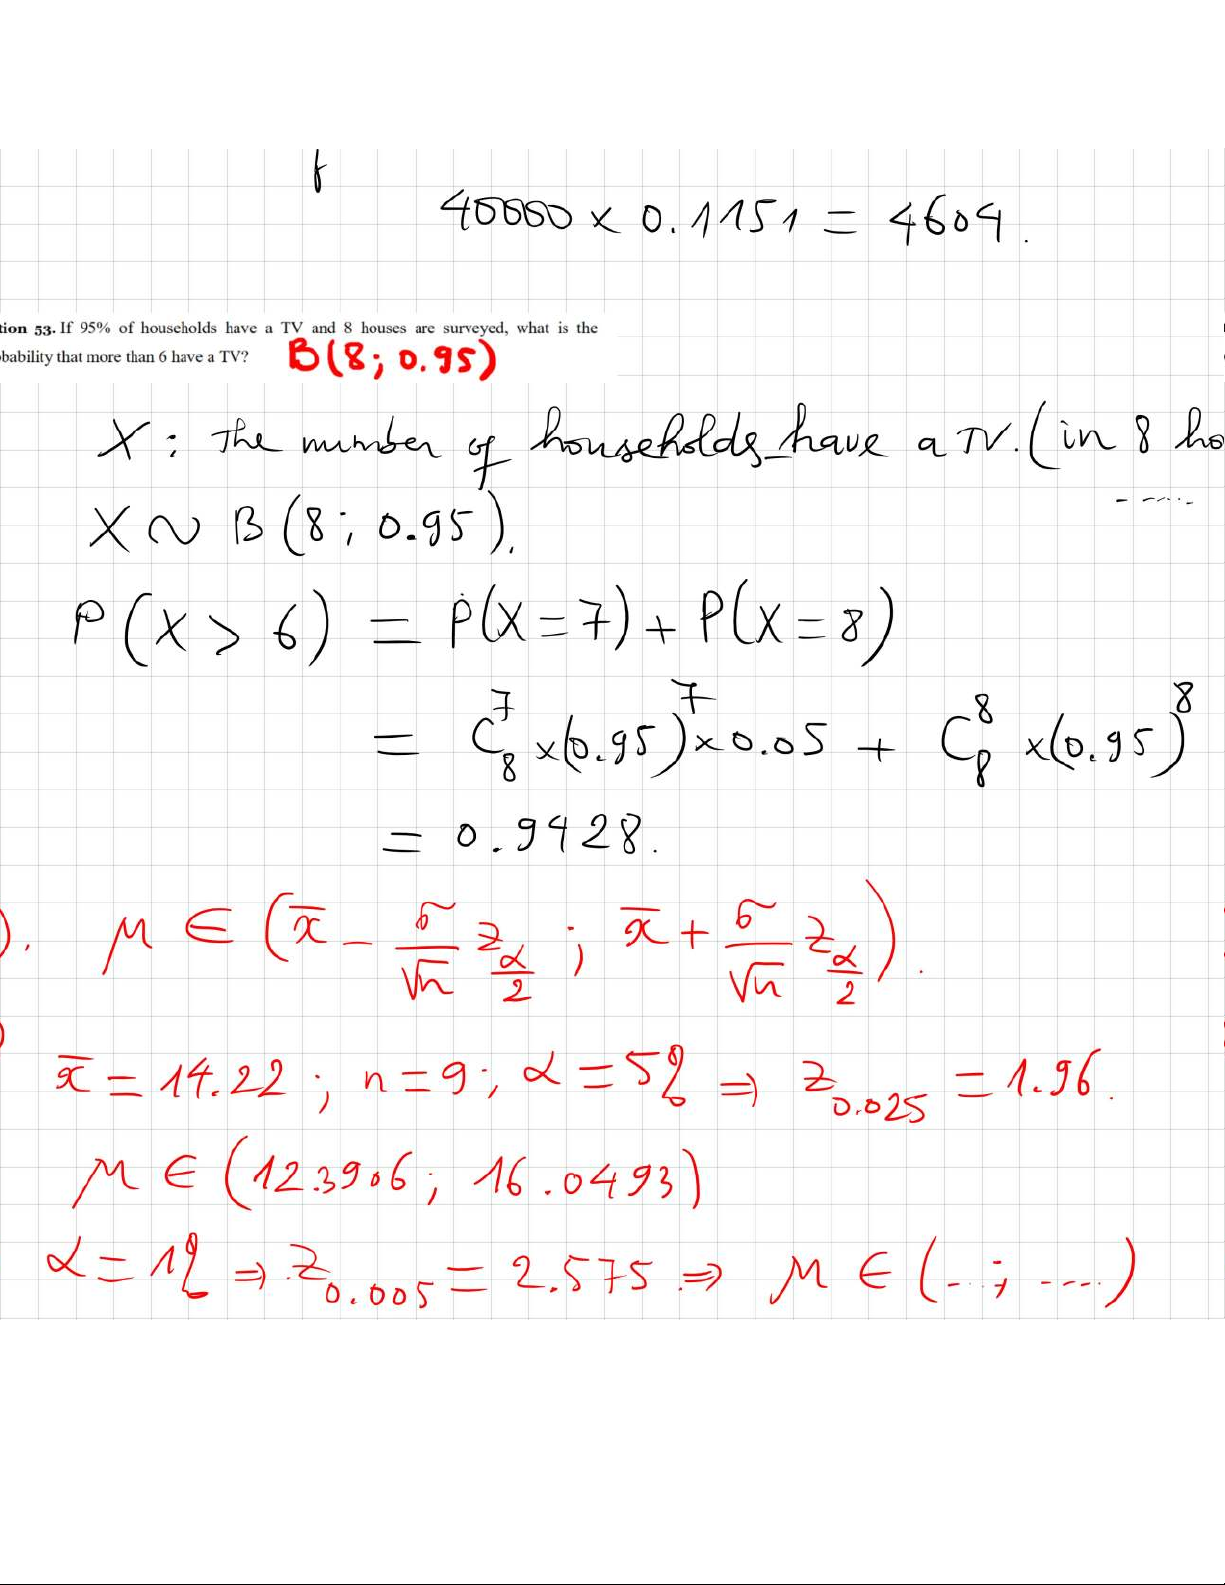 f
40000 × 0.1151 = 4604.
tion 53. If 95% of households have a TV and 8 houses are surveyed, what is the
bability that more than 6 have a TV? B(8; 0.95)
X: The number of households have a TV. (in 8 ho
X ~ B(8; 0.95).
P(X > 6) = P(X = 7) + P(X = 8)
= C₈⁷ × (0.95)⁷ × 0.05 + C₈⁸ × (0.95)⁸
= 0.9428.
). μ ∈ (x̄ − σ/√n z_{α/2} ; x̄ + σ/√n z_{α/2}).
x̄ = 14.22 ; n = 9 ; α = 5% ⇒ z_{0.025} = 1.96.
μ ∈ (12.3906 ; 16.0493)
α = 1% ⇒ z_{0.005} = 2.575 ⇒ μ ∈ (... ; ....)